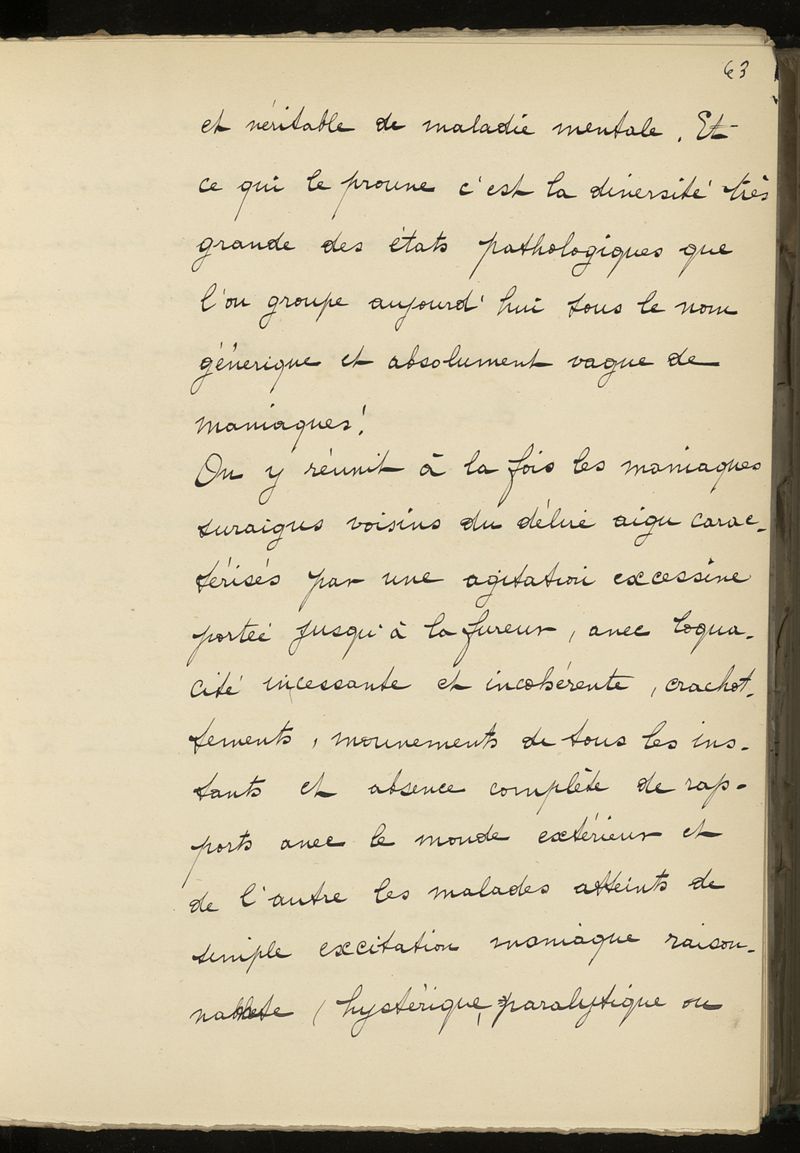 63
et véritable de maladie mentale. Et
ce qui le prouve c'est la diversité très
grande des états pathologiques que
l'on groupe aujourd'hui sous le nom
générique et absolument vague de
maniaques!
On y réunit à la fois les maniaques
suraigus voisins du délire aigu carac-
térisés par une agitation excessive
portée jusqu'à la fureur, avec loqua-
cité incessante et incohérente, crachot-
tements, mouvements de tous les ins-
tants et absence complète de rap-
ports avec le monde extérieur et
de l'autre les malades atteints de
simple excitation maniaque raison-
(hystérique, paralytique ou